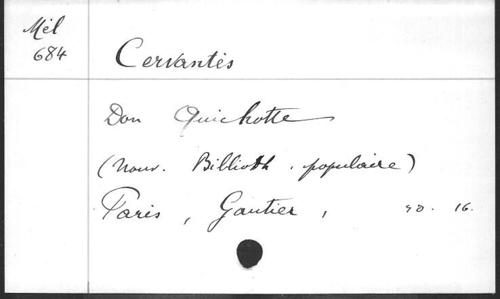 Mél
684
Cervantès
Don Quichotte
(Nouv. Biblioth. populaire)
Paris, Gautier, 90. 16.